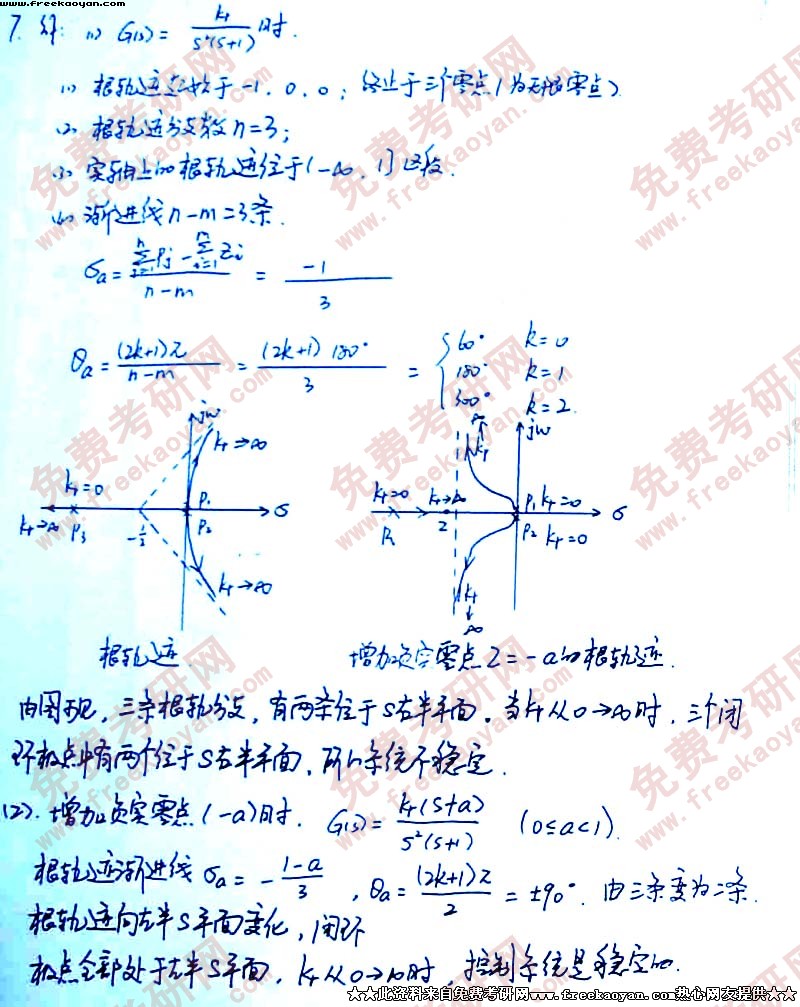 www.freekaoyan.com
7. 解: (1) G(s) = kr / s²(s+1) 时.
(1) 根轨迹起始于 -1, 0, 0; 终止于三个零点(为无穷零点)
(2) 根轨迹分支数 n=3;
(3) 实轴上的根轨迹位于(-∞, 1] 区段.
(4) 渐进线 n-m=3条.
σa = (∑pj - ∑zi) / (n-m) = -1 / 3
θa = (2k+1)π / (n-m) = (2k+1)180° / 3 = { 60° k=0
180° k=1
300° k=2
jω
kr→∞
kr=0
kr→∞ P3 -1/3 P1 P2 σ
kr→∞
∞
kr
jω
kr=0 kr→∞ P1 kr=0 σ
z P2 kr=0
kr
∞
根轨迹
增加负实零点 Z=-a的根轨迹.
由图可见, 三条根轨分支, 有两条位于S右半平面. 当kr从0→∞时, 三个闭
环极点中有两个位于S右半平面, 所以系统不稳定.
(2). 增加负实零点(-a)时. G(s) = kr(s+a) / s²(s+1) (0≤a<1).
根轨迹渐进线 σa = - 1-a / 3 , θa = (2k+1)π / 2 = ±90°. 由三条变为二条.
根轨迹向左半S平面变化, 闭环
极点全部处于左半S平面, kr从0→∞时, 控制系统是稳定的.
免费考研网
www.freekaoyan.com
★★此资料来自免费考研网www.freekaoyan.com热心网友提供★★